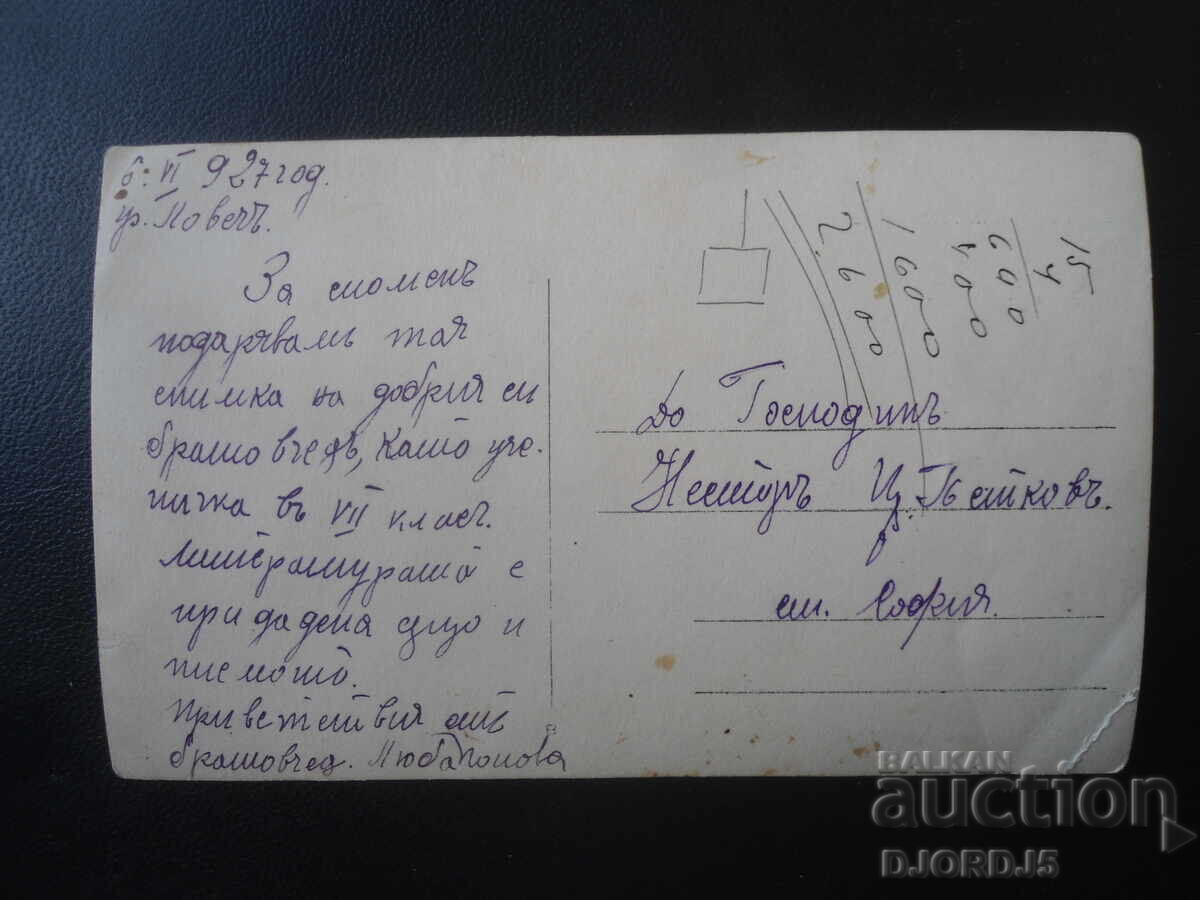 6. VI 927 год.
гр. Ловечъ.
За споменъ
подарявамъ тая
снимка на добрия си
братовчедъ, като уче-
ничка въ VII класъ.
Литературата е
придадена също и
писмото.
Приветствия отъ
братовчед. Люба Попова
15
4
600
400
1600
2.600
До Господинъ
Несторъ Цв. Петковъ.
гр. София.
BALKAN
auction
DJORDJ5